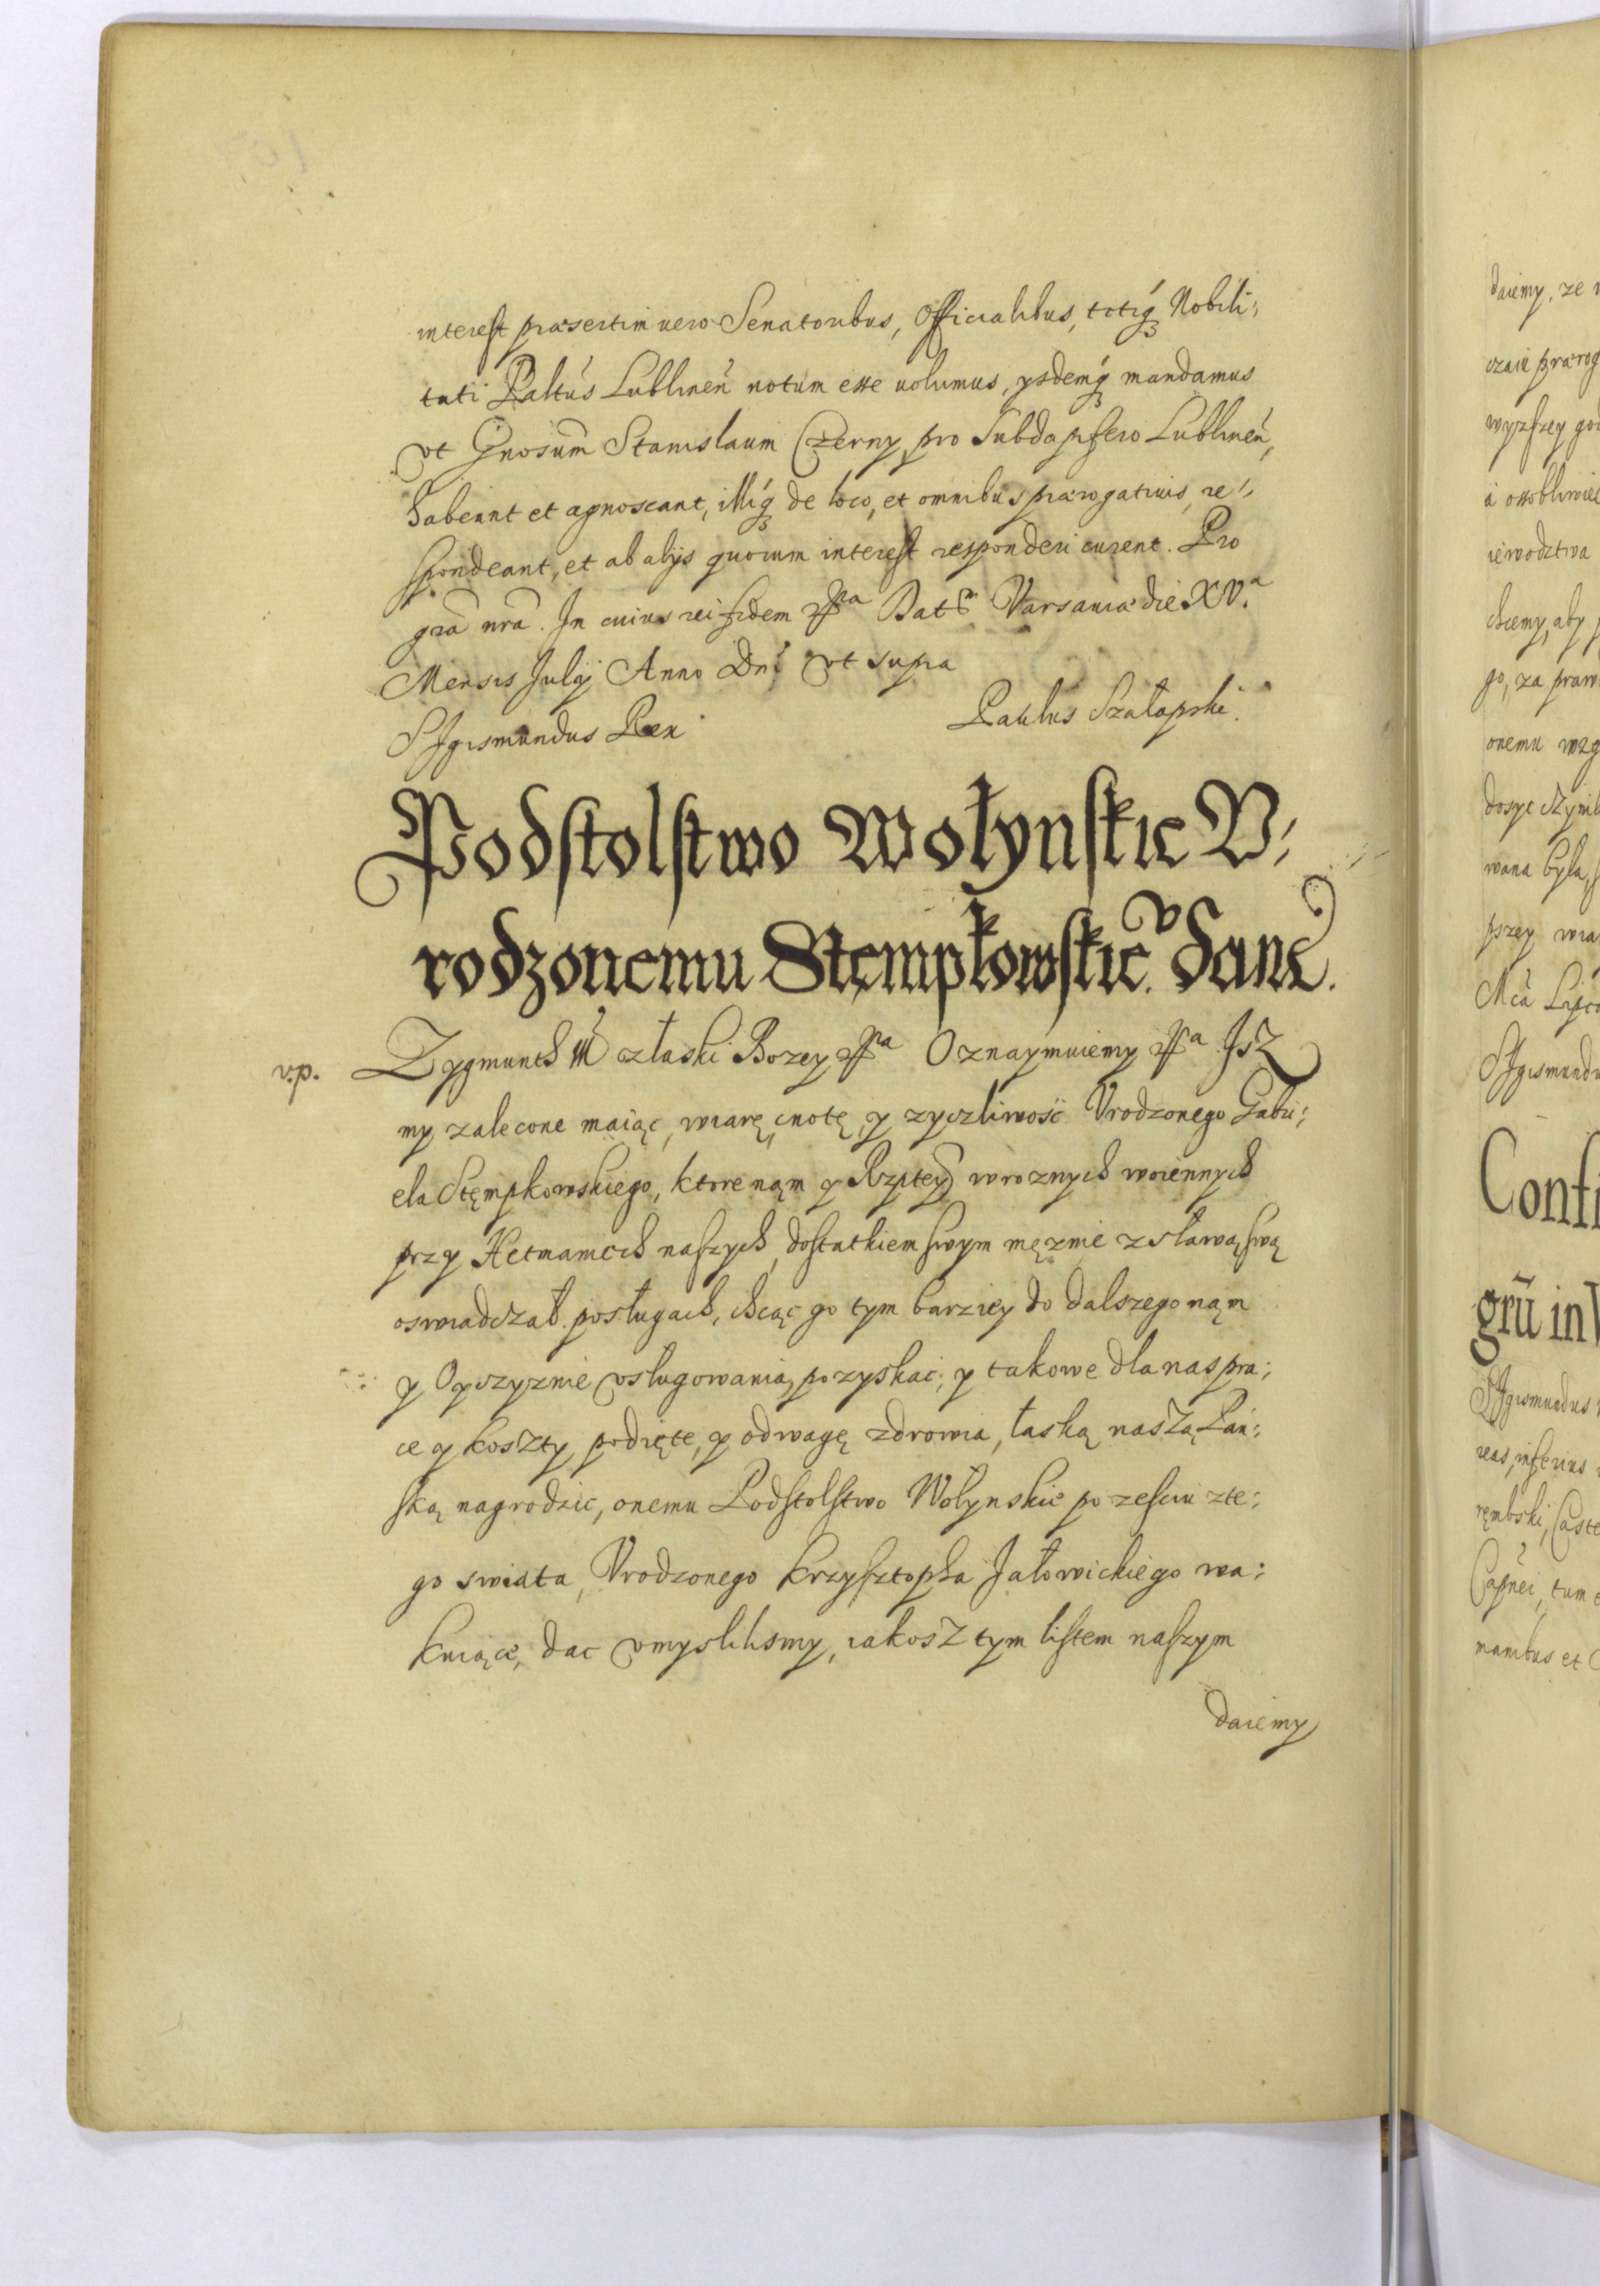 interest præsertim uero Senatoribus, Officialibus, totiq́ʒ Nobili;
tati Paltús Lublineń notum esse uolumus, ysdemq́ʒ mandamus
vt Gnosum̃ Stanislaum Czerny, pro Subdapifero Lublineń,
habeant et agnoscant, illiq́ʒ de loco, et omnibus prærogatiuis, re:
spondeant, et ab alijs quorum interest responderi curent. Pro
gra͠ nra͠. In cuius rei fidem Datt̃ Varsauiæ die XV.a
Mensis Julij Anno Dn̓i vt supra
Paulus Szałapski.
Sigismundus Rex
Podstolstwo Wołynskie V;
rodzonemu Stempkowskieº. dane.
v.p.
Zygmunth III z łaski Bozey Oznaymuiemy Isz
my zalecone maiąc, wiarę, cnotę, y zyczliwość Vrodzonego Gabri;
ela Stęmpkowskiego, ktore nąm y Rzptey w roznych woiennych
przy Hetmanich naszych, dostatkiem swym męznie z sławą swą
oswiadczał posługach, chcąc go tym barziey do dalszego nąm
y Oyczyznie vsługowania, pozyskac; y takowe dla nas pra;
ce y koszty podięte, y odwagę zdrowia, łaską naszą Pań;
ską nagrodzic, onemu Podstolstwo Wołynskie po zesciu z te;
go swiata, Vrodzonego Krzysztopha Jałowickiego wa;
kuiące, dac vmyslilismy, iakosz tym listem naszym
daiemy
daiemy, ze
czaie prærog
wyzszey
a osobliwie
iewodztwa
chcemy, aby
go, za praw
onemu wzg
dosyc czynil
wana była,
przy
Mca Lipca
Sigismund
Confi
grũ in
Sigismundus
reas, inferius
rembski, Caste
tum
manibus et